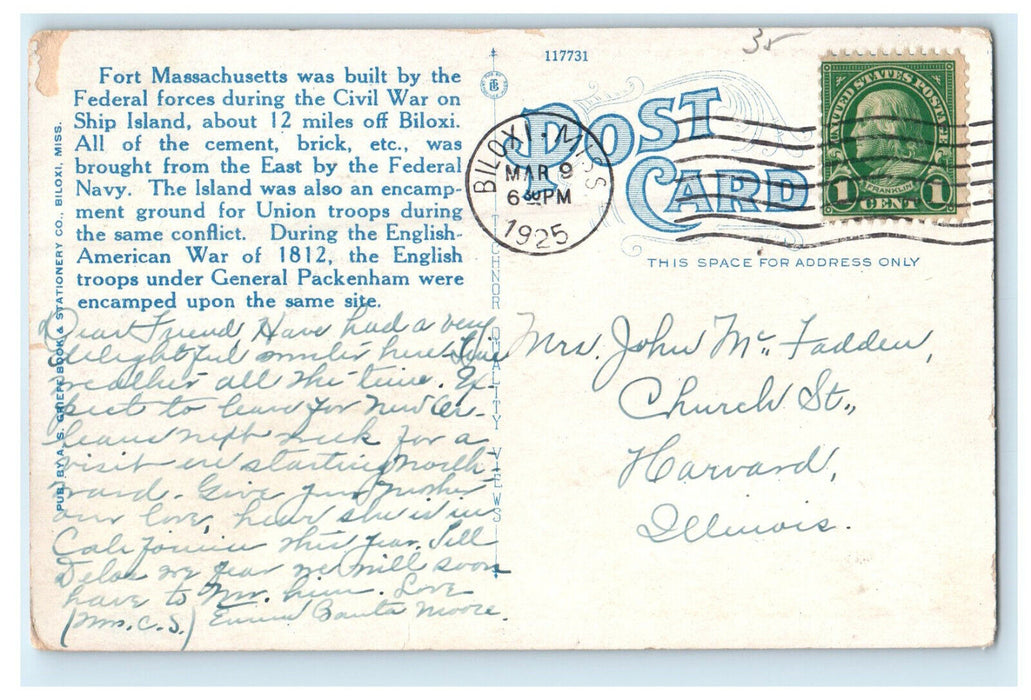 Fort Massachusetts was built by the
Federal forces during the Civil War on
Ship Island, about 12 miles off Biloxi.
All of the cement, brick, etc., was
brought from the East by the Federal
Navy. The Island was also an encamp-
ment ground for Union troops during
the same conflict. During the English-
American War of 1812, the English
troops under General Packenham were
encamped upon the same site.
Dear Friend, Have had a very
delightful winter here. Fine
weather all the time. Ex-
pect to leave for New Or-
leans next week for a
visit ere starting north-
ward. Give your mother
our love, hear she is in
California this year. Tell
Delos we fear we will soon
have to Mr. him. Love
(Mrs. C. S.) Emma Banta Moore.
PUB. BY A. S. GRIEFF BOOK & STATIONERY CO., BILOXI, MISS.
117731
TECHNOR QUALITY VIEWS
POST
CARD
35
BILOXI, MISS.
MAR 9
6 PM
1925
UNITED STATES POSTAGE
FRANKLIN
1 CENT 1
THIS SPACE FOR ADDRESS ONLY
Mrs. John McFadden,
Church St.,
Harvard,
Illinois.